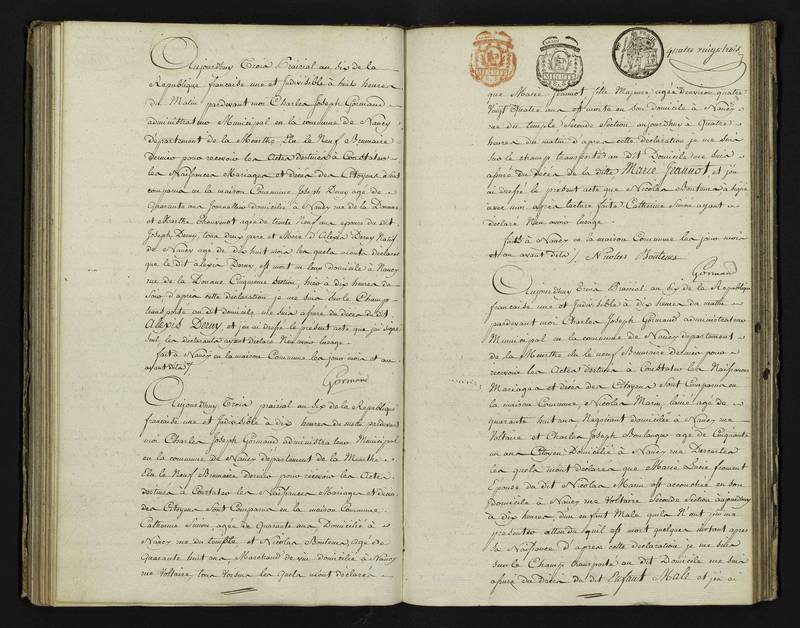 Aujourdhuy Trois Prairial an six de la
Republique francaise une et Indivisible à huit heures
du Matin pardevant moi Charles Joseph Gormand
administrateur Municipal en la commune de Nancy
département de la Meurthe Elu le Neuf Brumaire
dernier pour recevoir les Actes destinés à Constater
les Naissances Mariages et décès des Citoyens sont
comparus en la maison Commune Joseph Deruy agé de
Quarante ans Journallier domicilié à Nancy rue de la Douane
et Marthe agée de trente Neuf ans epouse du dit
Joseph Deruy, tous deux pere et Mere d'Alexis Deruy Natif
de Nancy agé de dix huit mois les quels m'ont déclarés
que le dit alexis Deruy, est mort en leur domicile à Nancy
rue de la Douane Cinquieme Section, hier à dix heures du
Soir d'apres cette déclaration je me suis sur le Champ
transporté au dit domicile me suis assuré du décès du dit
Alexis Deruy et j'ai dressé le présent acte que j'ai signé
Seul les déclarants ayant déclaré Non avoir lusage.
fait à Nancy en la maison Commune les jour mois et an
avant dits /.
Gormand
Aujourdhuy Trois prairial an Six de la Republique
francaise une et Indivisible à dix heures du matin pardevant
moi Charles Joseph Gormand administrateur Municipal
en la commune de Nancy département de la Meurthe
Elu le Neuf Brumaire dernier pour recevoir les Actes
destinés à Constater les Naissances Mariages et décès
des Citoyens sont Comparus en la maison Commune
Catherine Simon, agée de Quarante ans Domiciliée à
Nancy rue du temple et Nicolas Bouteux, agé de
Quarante huit ans Marchand de vin domicilié à Nancy
rue Voltaire, tous les quels m'ont déclarés
quatre vingt trois
que Marie Jeannot fille Majeure agée d'environ quatre
vingt quatre ans est morte en son domicile à Nancy
rue du temple Seconde Section, aujourdhuy à Quatre
heures du matin d'apres cette déclaration je me suis
sur le champ transporté au dit Domicile me suis
assuré du décès de la dite Marie Jeannot et j'en
ai dressé le présent acte que Nicolas Bouteux à signé
avec moi apres lecture faite Catherine Simon ayant
declaré Non avoir lusage.
faits à Nancy en la maison Commune les jour mois
et an avant dits /. Nicolas Bouteux
Gormand
Aujourdhuy Trois Prairial an Six de la Republique
francaise une et Indivisible à dix heures du matin
pardevant moi Charles Joseph Gormand administrateur
Municipal en la commune de Nancy département
de la Meurthe Elu le neuf Brumaire dernier pour
recevoir les Actes destinés à Constater les Naissances
Mariages et décès des Citoyens sont Comparus en
la maison Commune, Nicolas Marin, lainé agé de
quarante huit ans Negociant domicilié à Nancy rue
Voltaire et Charles Joseph Boulanger agé de Cinquante
un ans Citoyen Domicilié à Nancy rue Descartes
les quels m'ont déclarés que Marie Lucie
Epouse du dit Nicolas Marin est accouchée en son
domicile à Nancy rue Voltaire Seconde Section aujourdhuy
à dix heures, d'un enfant Male quils N'ont pu me
presenter attendu quil est mort quelques instant apres
la Naissance d'apres cette déclaration je me suis
sur le Champ transporté au dit Domicile me suis
assuré du Décès du dit Enfant Male et j'en ai